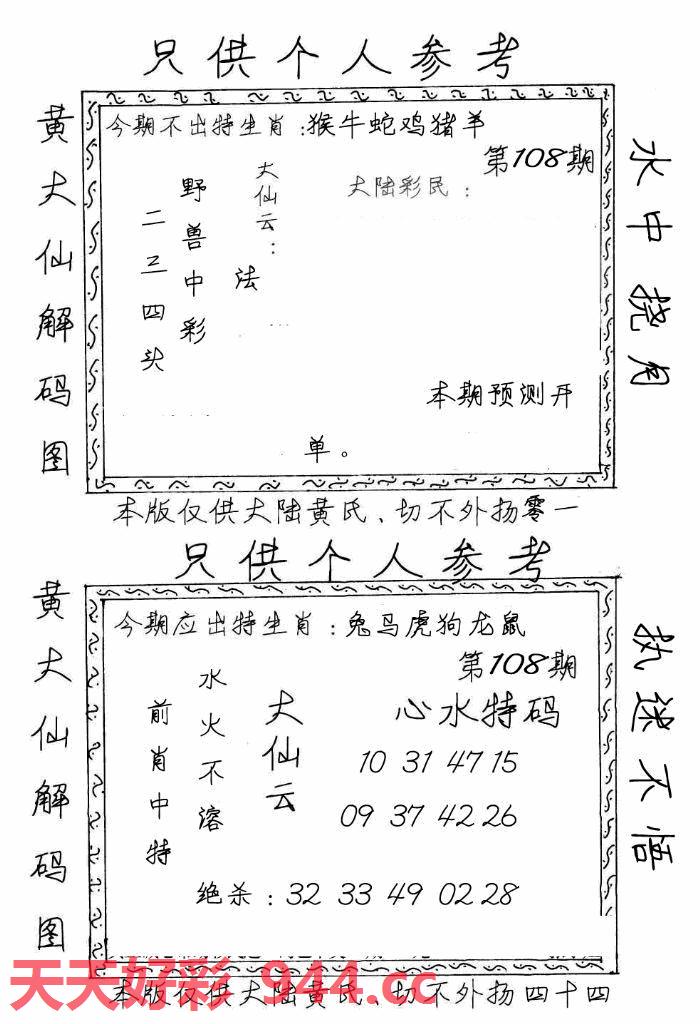 只供个人参考
黄大仙解码图
今期不出特生肖：猴牛蛇鸡猪羊
第108期
大陆彩民：
大仙云：
野兽中彩法
二三四头
本期预测开
单。
水中挠月
本版仅供大陆黄氏、切不外扬零一
只供个人参考
黄大仙解码图
今期应出特生肖：兔马虎狗龙鼠
第108期
心水特码
大仙云
水火不溶
前肖中特
10 31 47 15
09 37 42 26
绝杀：32 33 49 02 28
执迷不悟
天天好彩 944.cc
本版仅供大陆黄氏、切不外扬四十四